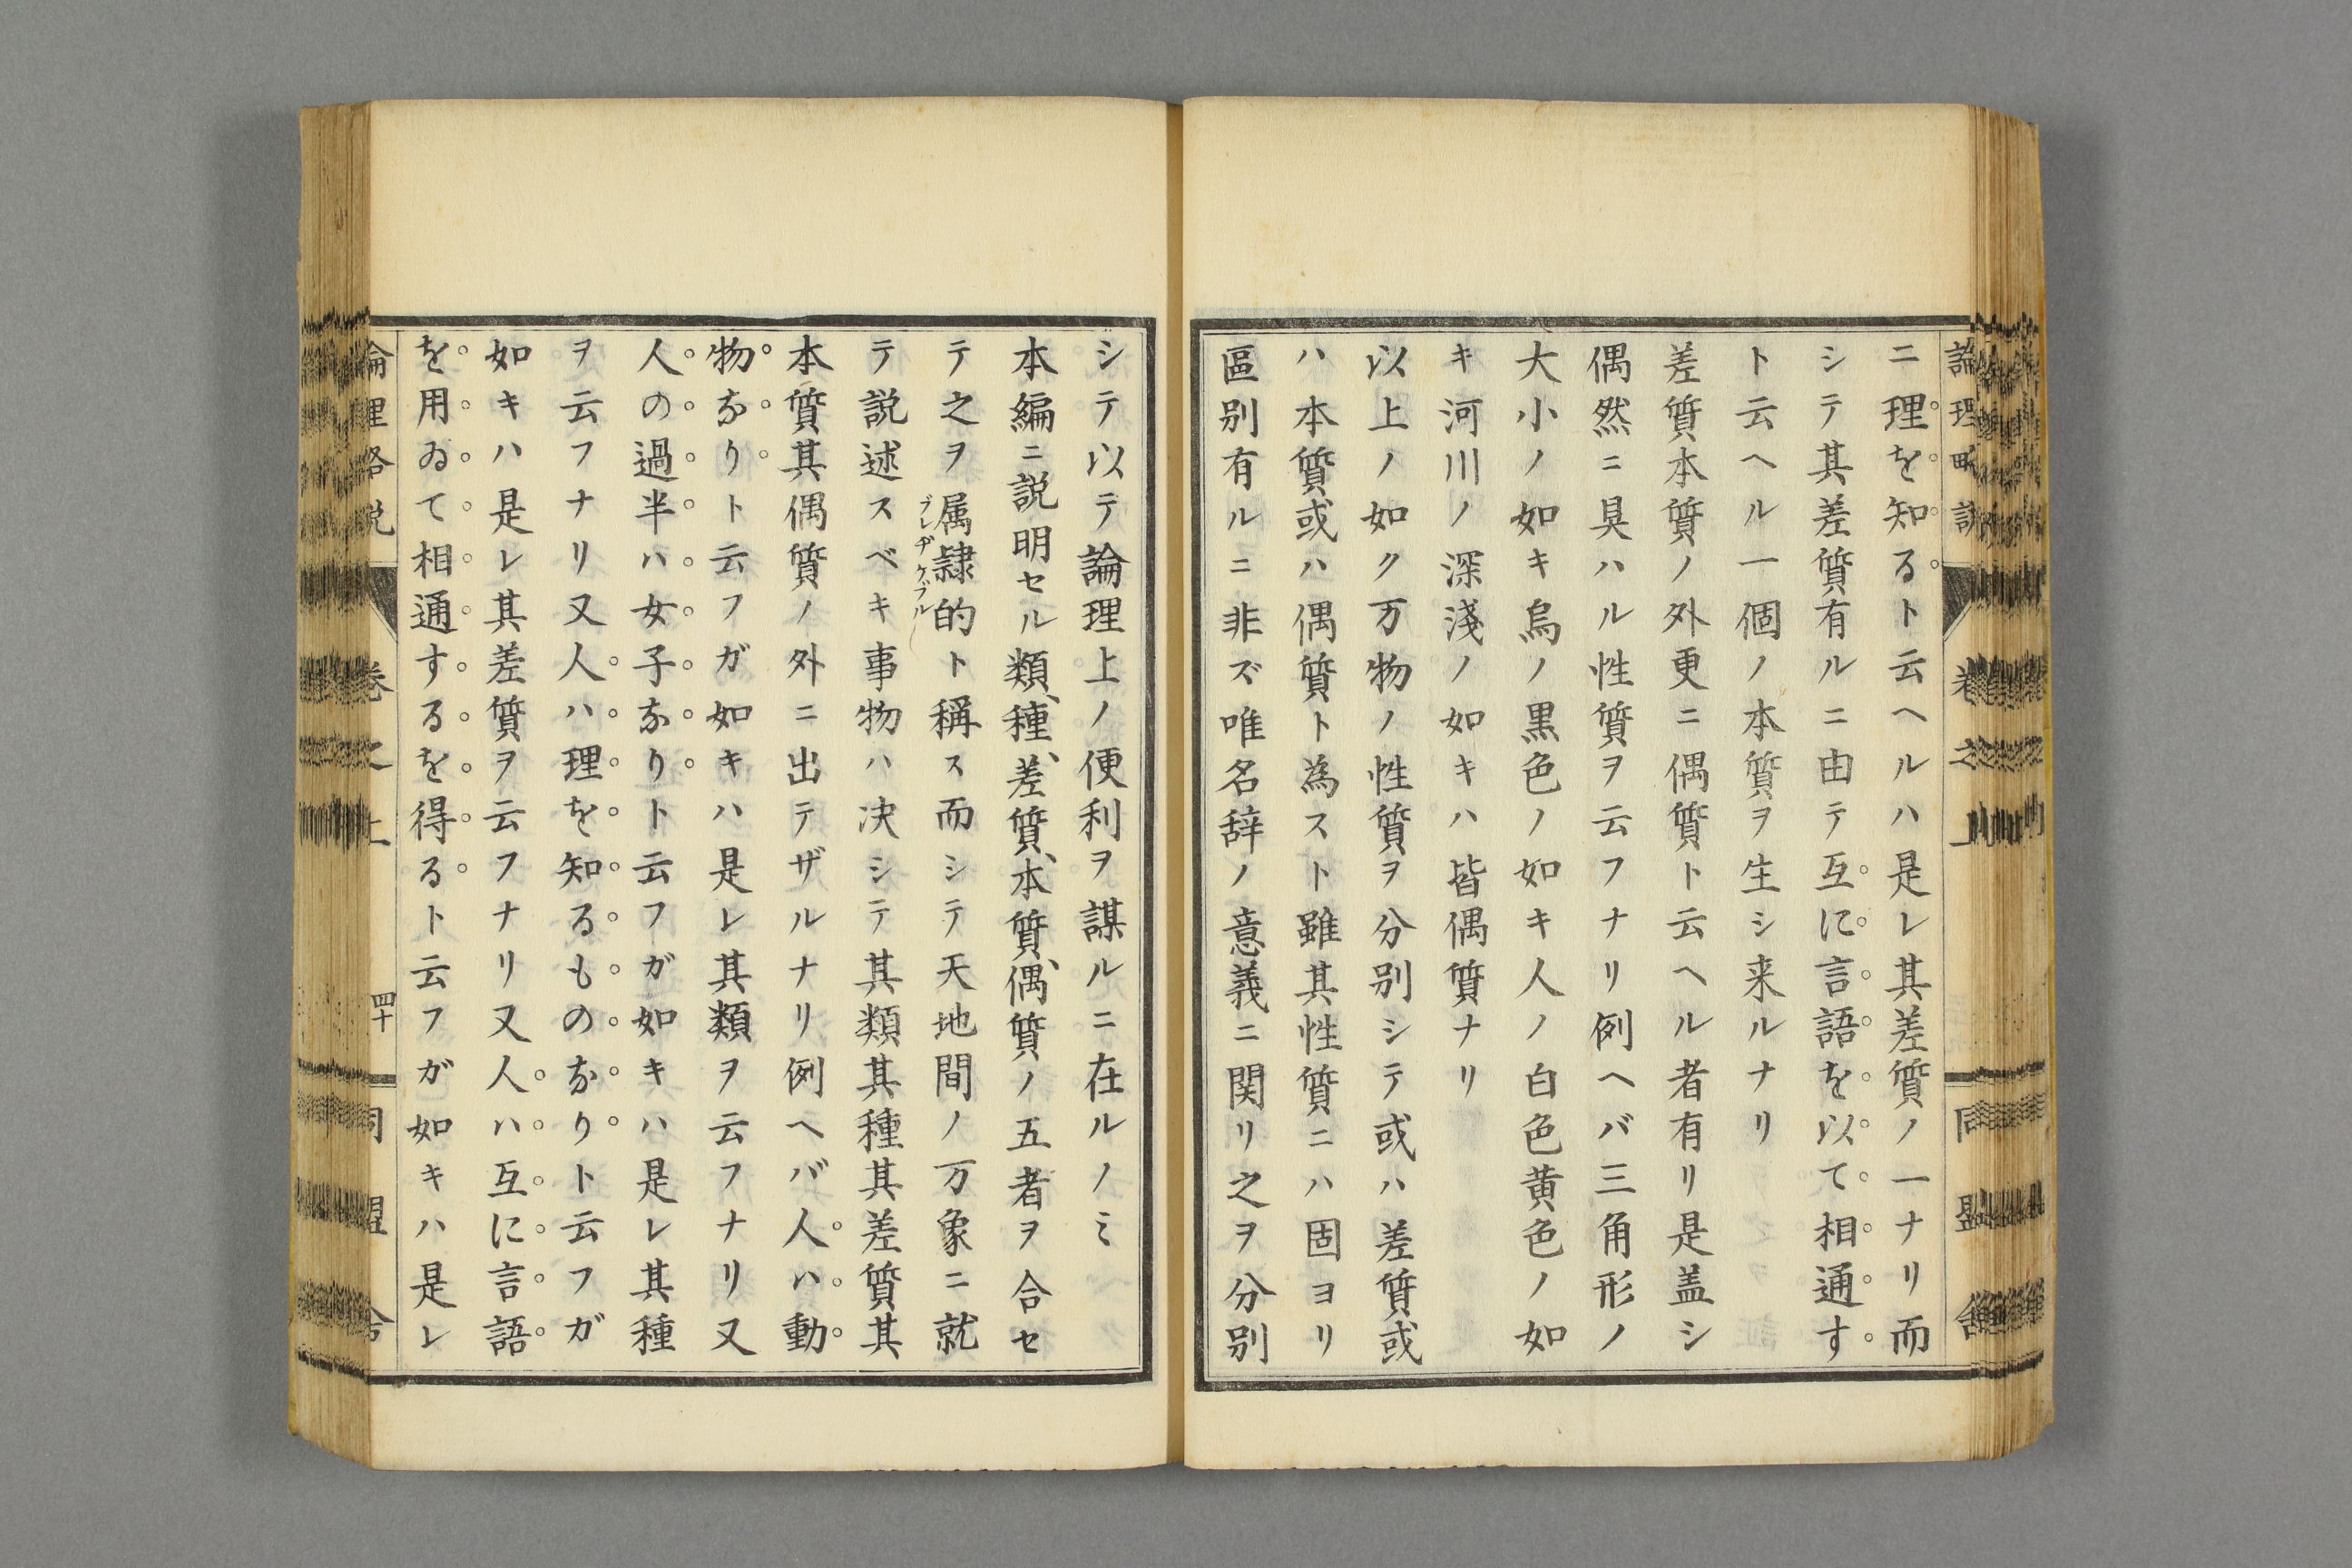 論理略説 卷之上 同盟舎
ニ理を知るト云ヘルハ是レ其差質ノ一ナリ而
シテ其差質有ルニ由テ互に言語を以て相通す
ト云ヘル一個ノ本質ヲ生シ来ルナリ
差質本質ノ外更ニ偶質ト云ヘル者有リ是盖シ
偶然ニ具ハル性質ヲ云フナリ例ヘバ三角形ノ
大小ノ如キ烏ノ黒色ノ如キ人ノ白色黄色ノ如
キ河川ノ深淺ノ如キハ皆偶質ナリ
以上ノ如ク万物ノ性質ヲ分別シテ或ハ差質或
ハ本質或ハ偶質ト為スト雖其性質ニハ固ヨリ
區別有ルニ非ズ唯名辞ノ意義ニ関リ之ヲ分別
シテ以テ論理上ノ便利ヲ謀ルニ在ルノミ
本編ニ説明セル類、種、差質、本質、偶質ノ五者ヲ合セ
テ之ヲ属隷的ト稱ス而シテ天地間ノ万象ニ就
プレヂケブル
テ説述スベキ事物ハ決シテ其類其種其差質其
本質其偶質ノ外ニ出テザルナリ例ヘバ人ハ動
物なりト云フガ如キハ是レ其類ヲ云フナリ又
人の過半ハ女子なりト云フガ如キハ是レ其種
ヲ云フナリ又人ハ理を知るものなりト云フガ
如キハ是レ其差質ヲ云フナリ又人ハ互に言語
を用ゐて相通するを得るト云フガ如キハ是レ
論理略説 卷之上 四十 同盟舎